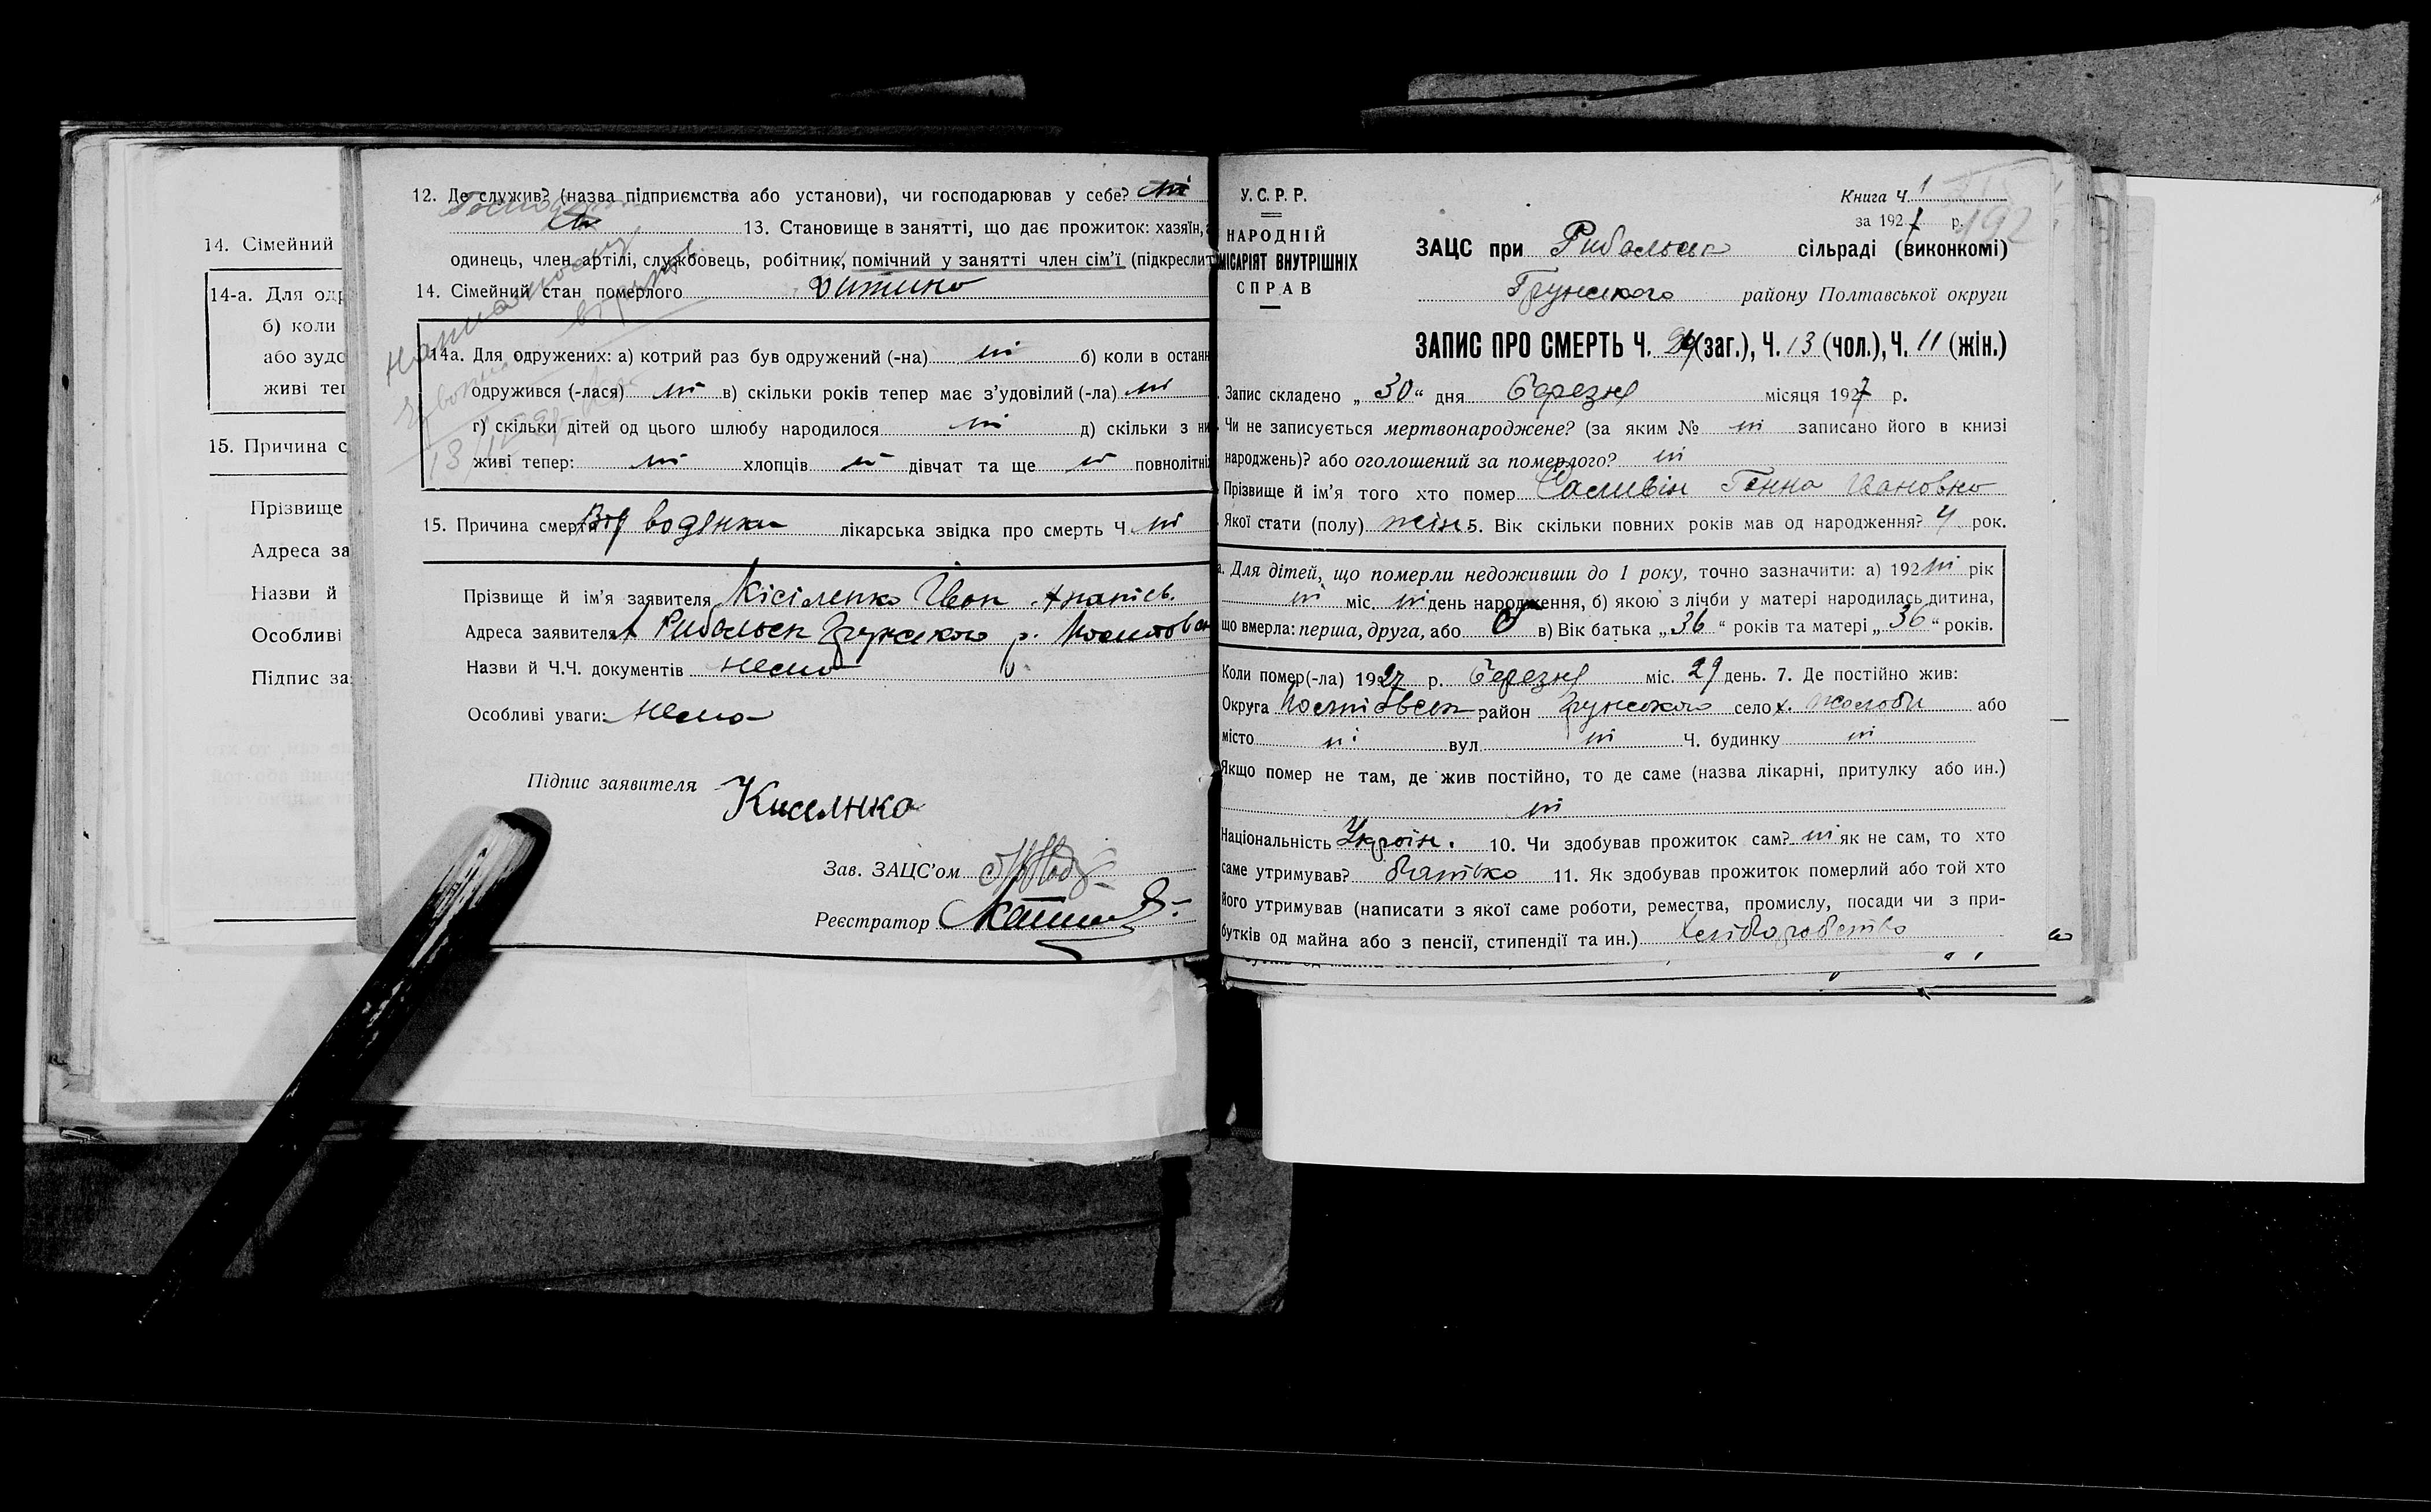 14. Сімейний
14-а. Для одр
б) коли
або зудо
живі теп
15. Причина с
Прізвище
Адреса за
Назви й
Особливі
Підпис за
12. Де служив? (назва підприємства або установи), чи господарював у себе? ні
13. Становище в занятті, що дає прожиток: хазяїн,
одинець, член артілі, службовець, робітник, помічний у занятті член сім'ї (підкреслит
14. Сімейний стан померлого дитина
14а. Для одружених: а) котрий раз був одружений (-на) ні б) коли в останн
одружився (-лася) ні в) скільки років тепер має з'удовілий (-ла) ні
г) скільки дітей од цього шлюбу народилося ні д) скільки з ни
живі тепер: ні хлопців ні дівчат та ще ні повнолітні
15. Причина смерти Від водянки лікарська звідка про смерть Ч. ні
Прізвище й ім'я заявителя Кісіленко Іван
Адреса заявителя Рибальськ Грунського р.
Назви й Ч.Ч. документів нема
Особливі уваги: Нема
Підпис заявителя Киселнко
Зав. ЗАЦС'ом
Реєстратор
У.С.Р.Р.
НАРОДНІЙ
МІСАРІЯТ ВНУТРІШНІХ
СПРАВ
Книга Ч. 1
за 1927 р. 192
ЗАЦС при Рибальськ сільраді (виконкомі)
Грунського району Полтавської округи
ЗАПИС ПРО СМЕРТЬ Ч. 24 (заг.), Ч. 13 (чол.), Ч. 11 (жін.)
Запис складено „30“ дня березня місяця 1927 р.
Чи не записується мертвонароджене? (за яким № ні записано його в книзі
народжень)? або оголошений за померлого? ні
Прізвище й ім'я того хто помер Ганна Івановна
Якої стати (полу) жін 5. Вік скільки повних років мав од народження? 4 рок.
а. Для дітей, що померли недоживши до 1 року, точно зазначити: а) 192 ні рік
ні міс. ні день народження, б) якою з лічби у матері народилась дитина,
що вмерла: перша, друга, або в) Вік батька „36“ років та матері „36“ років.
Коли помер(-ла) 1927 р. березня міс. 29 день. 7. Де постійно жив:
Округа Полтавськ район Грунського село х. Жолоби або
місто ні вул ні Ч. будинку ні
Якщо помер не там, де жив постійно, то де саме (назва лікарні, притулку або ин.)
ні
Національність Україн. 10. Чи здобував прожиток сам? ні як не сам, то хто
саме утримував? батько 11. Як здобував прожиток померлий або той хто
його утримував (написати з якої саме роботи, ремества, промислу, посади чи з при-
бутків од майна або з пенсії, стипендії та ин.) хліборобство